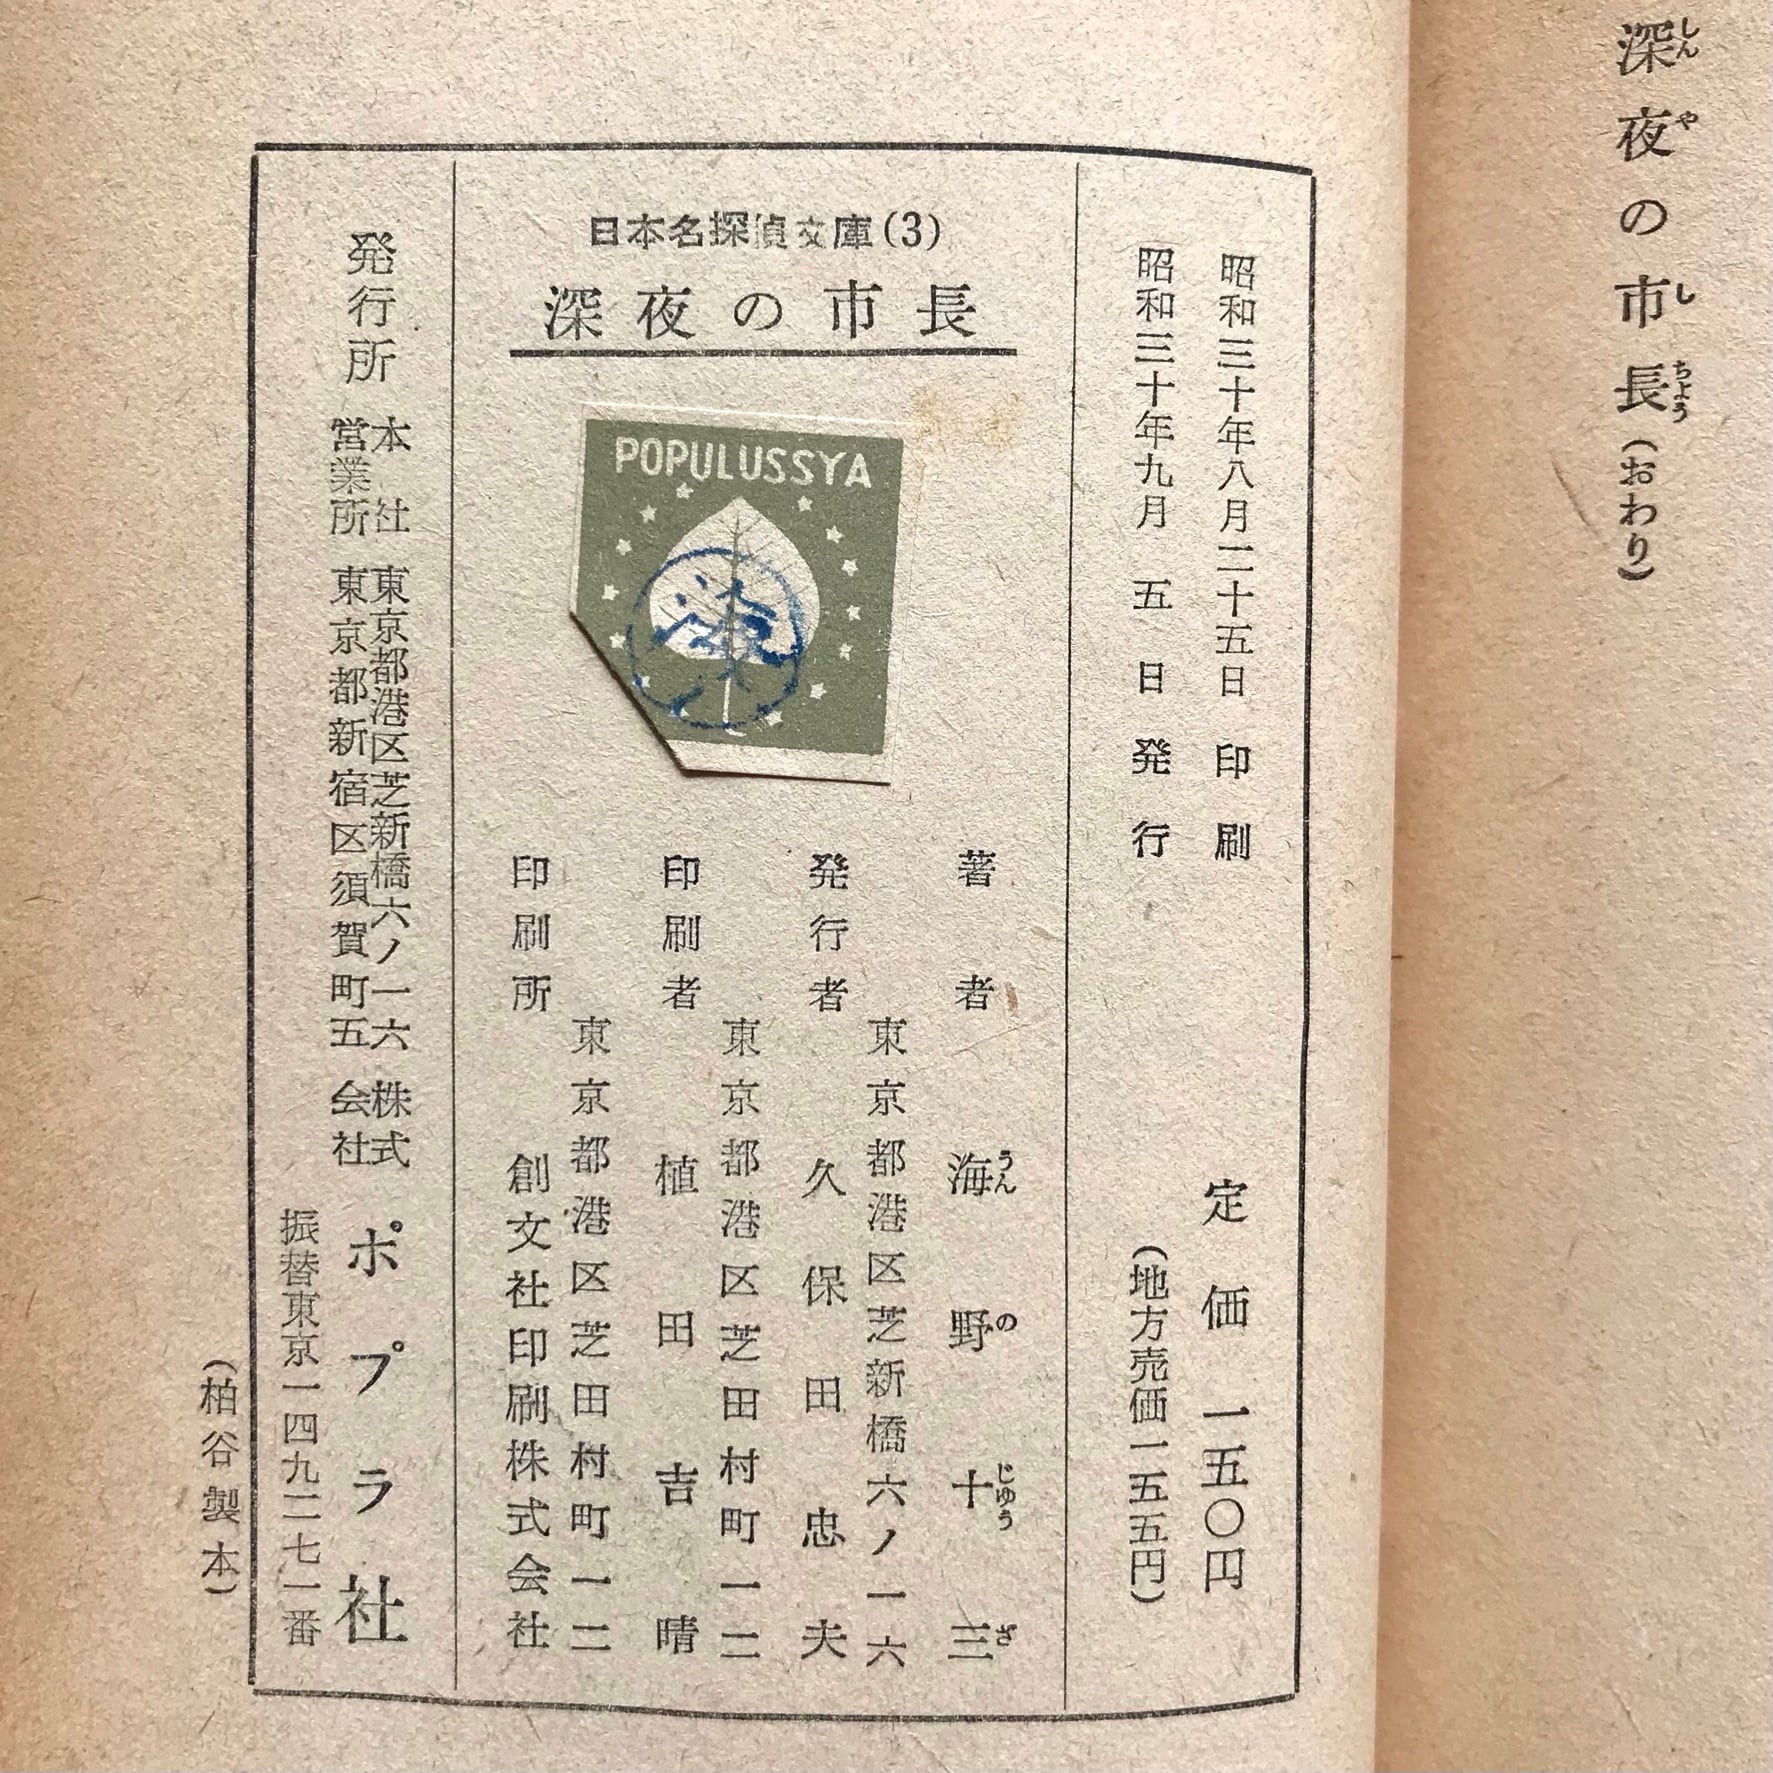 深夜の市長(おわり)
しん や し ちよう
昭和三十年八月二十五日 印刷
昭和三十年九月 五 日 発行
定価 一五〇円
(地方売価一五五円)
日本名探偵文庫(3)
深夜の市長
POPULUSSYA
著者 海野十三
うん の じゆう ざ
東京都港区芝新橋六ノ一六
発行者 久保田忠夫
東京都港区芝田村町一二
印刷者 植田吉晴
東京都港区芝田村町一二
印刷所 創文社印刷株式会社
発行所
本社 東京都港区芝新橋六ノ一六
営業所 東京都新宿区須賀町五
株式会社 ポプラ社
振替東京一四九二七一番
(柏谷製本)